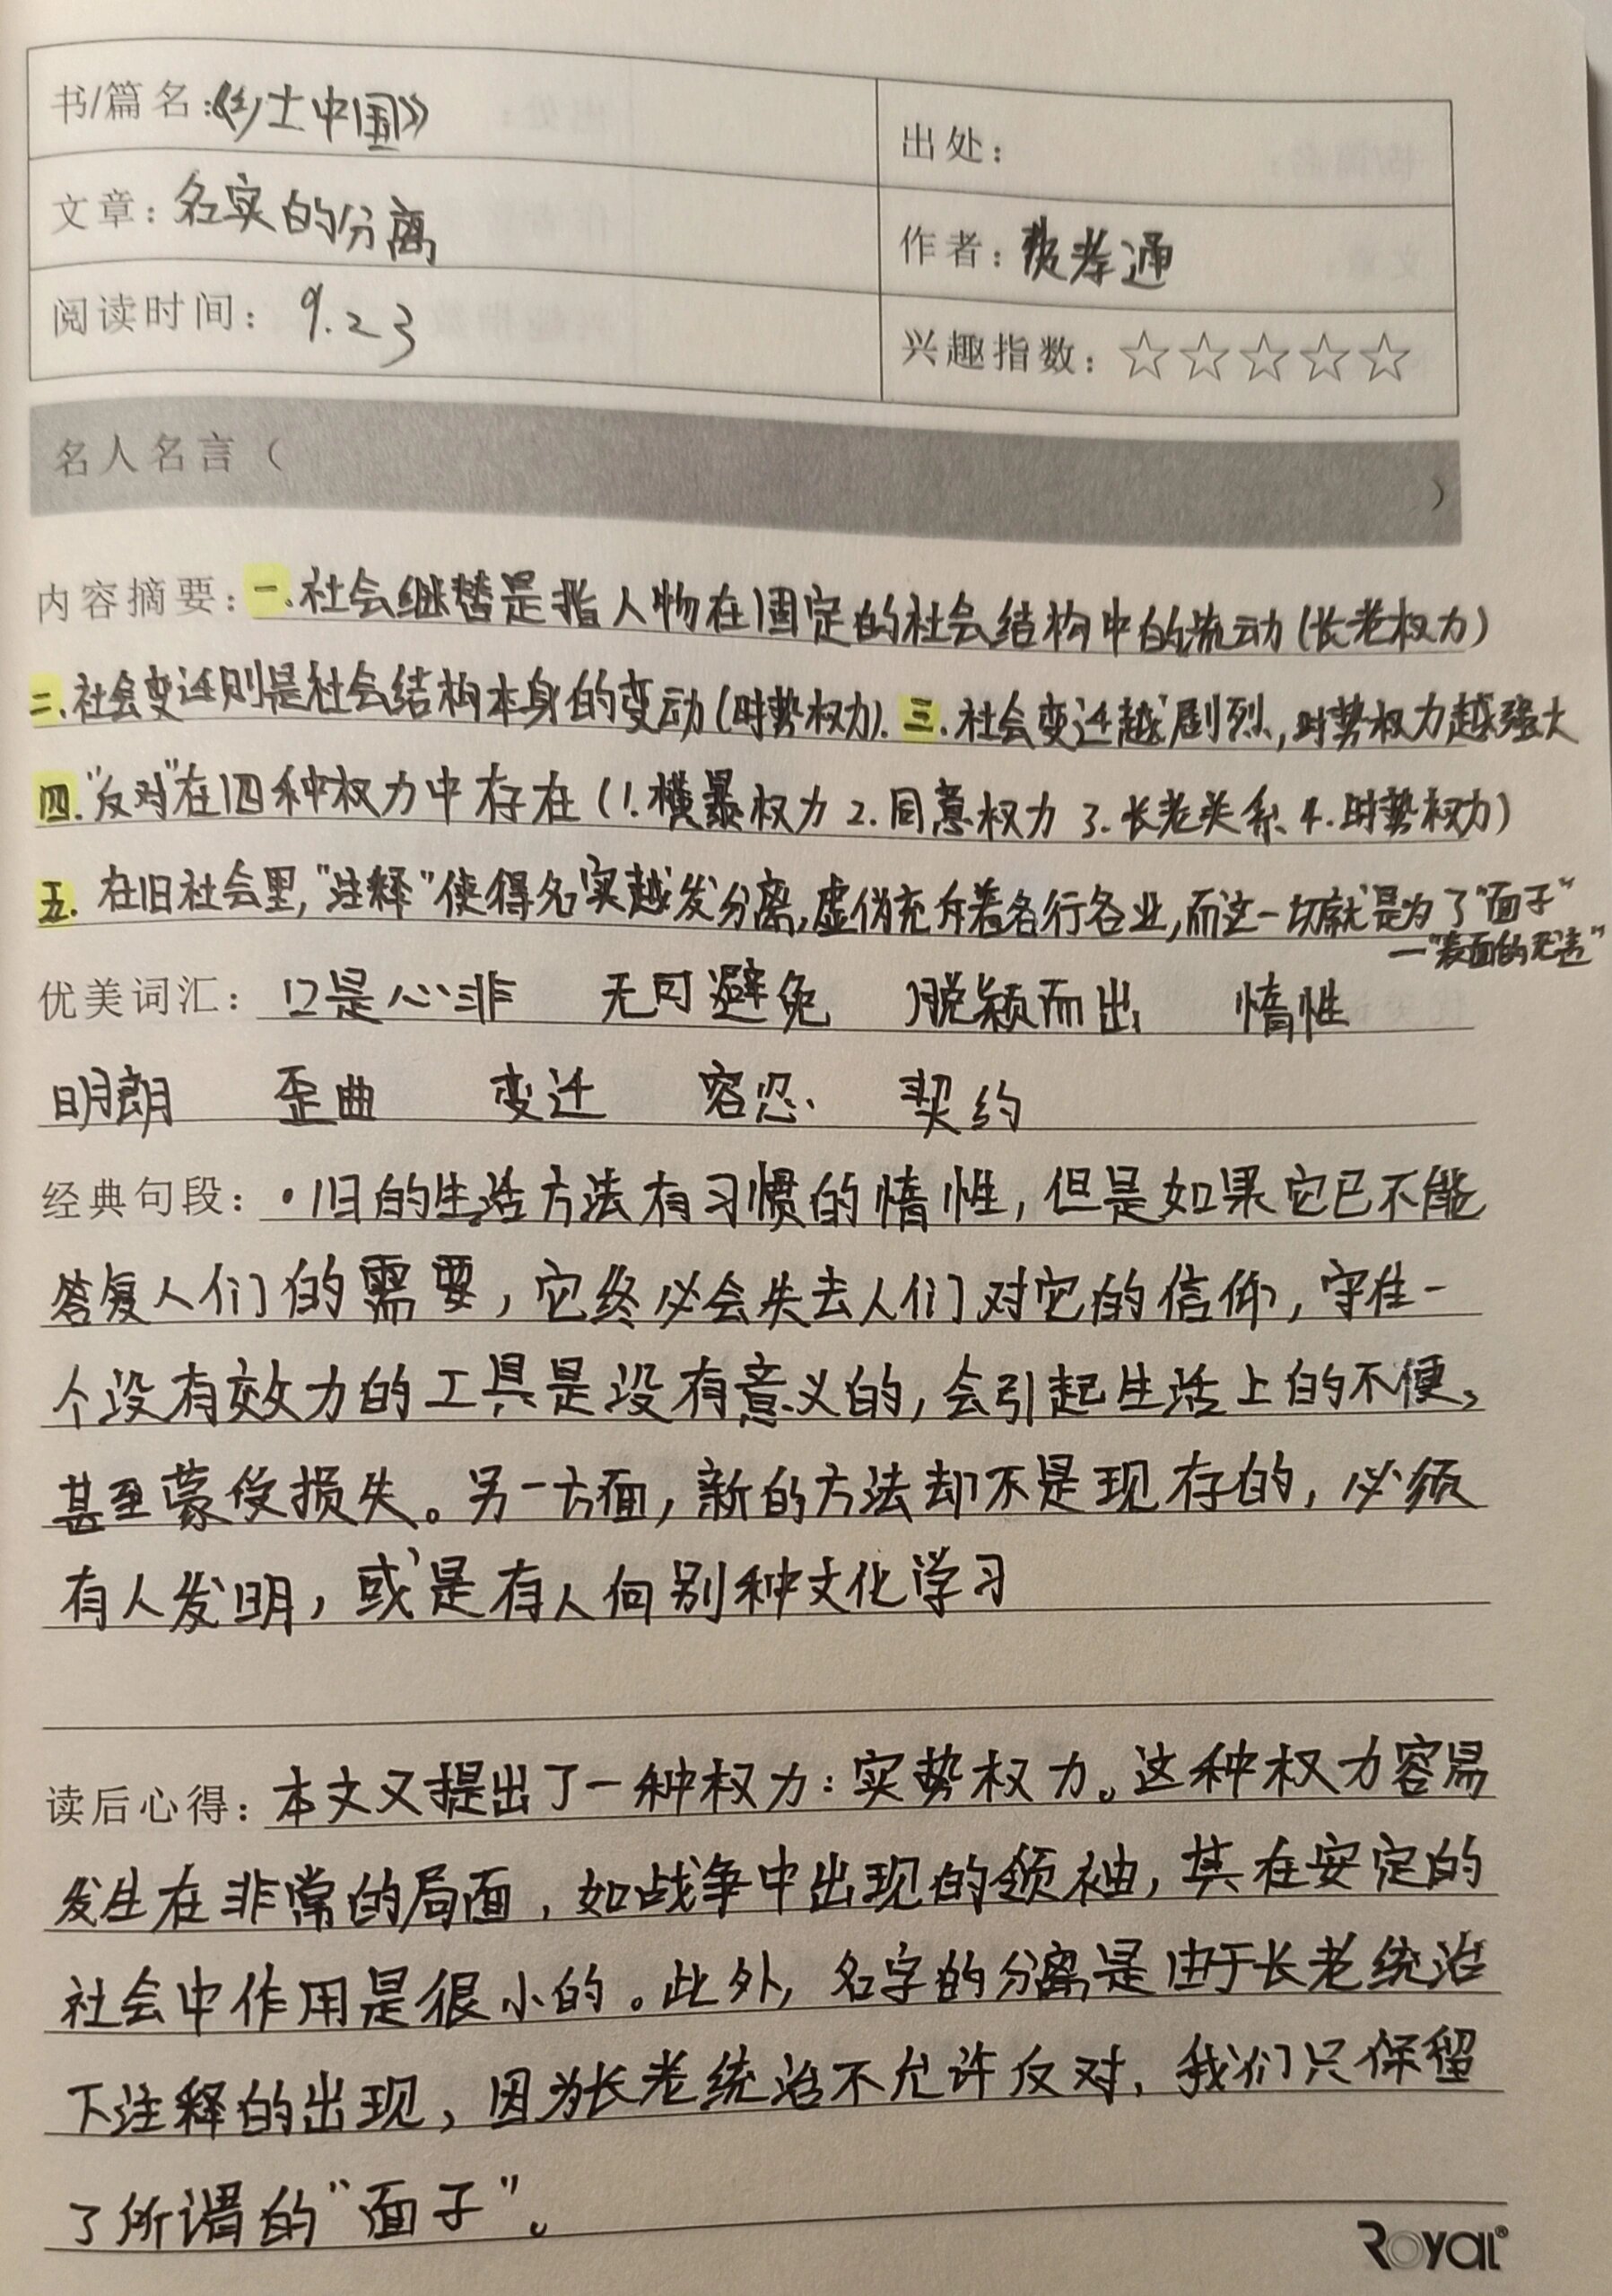 书/篇名：《乡土中国》
出处：
文章：名实的分离
作者：费孝通
阅读时间：9.23
兴趣指数：☆☆☆☆☆
名人名言（
）
内容摘要：一.社会继替是指人物在固定的社会结构中的流动(长老权力)
二.社会变迁则是社会结构本身的变动(时势权力).三.社会变迁越剧烈,时势权力越强大
四."反对"在四种权力中存在(1.横暴权力 2.同意权力 3.长老关系 4.时势权力)
五.在旧社会里,"注释"使得名实越发分离,虚伪充斥着各行各业,而这一切就是为了"面子"
—"表面的无违"
优美词汇：口是心非 无可避免 脱颖而出 惰性
明朗 歪曲 变迁 容忍. 契约
经典句段：·旧的生活方法有习惯的惰性,但是如果它已不能
答复人们的需要,它终必会失去人们对它的信仰,守住一
个没有效力的工具是没有意义的,会引起生活上的不便,
甚至蒙受损失。另一方面,新的方法却不是现存的,必须
有人发明,或是有人向别种文化学习
读后心得：本文又提出了一种权力:实势权力。这种权力容易
发生在非常的局面,如战争中出现的领袖,其在安定的
社会中作用是很小的。此外,名字的分离是由于长老统治
下注释的出现,因为长老统治不允许反对,我们只保留
了所谓的"面子"。
ROYAL®